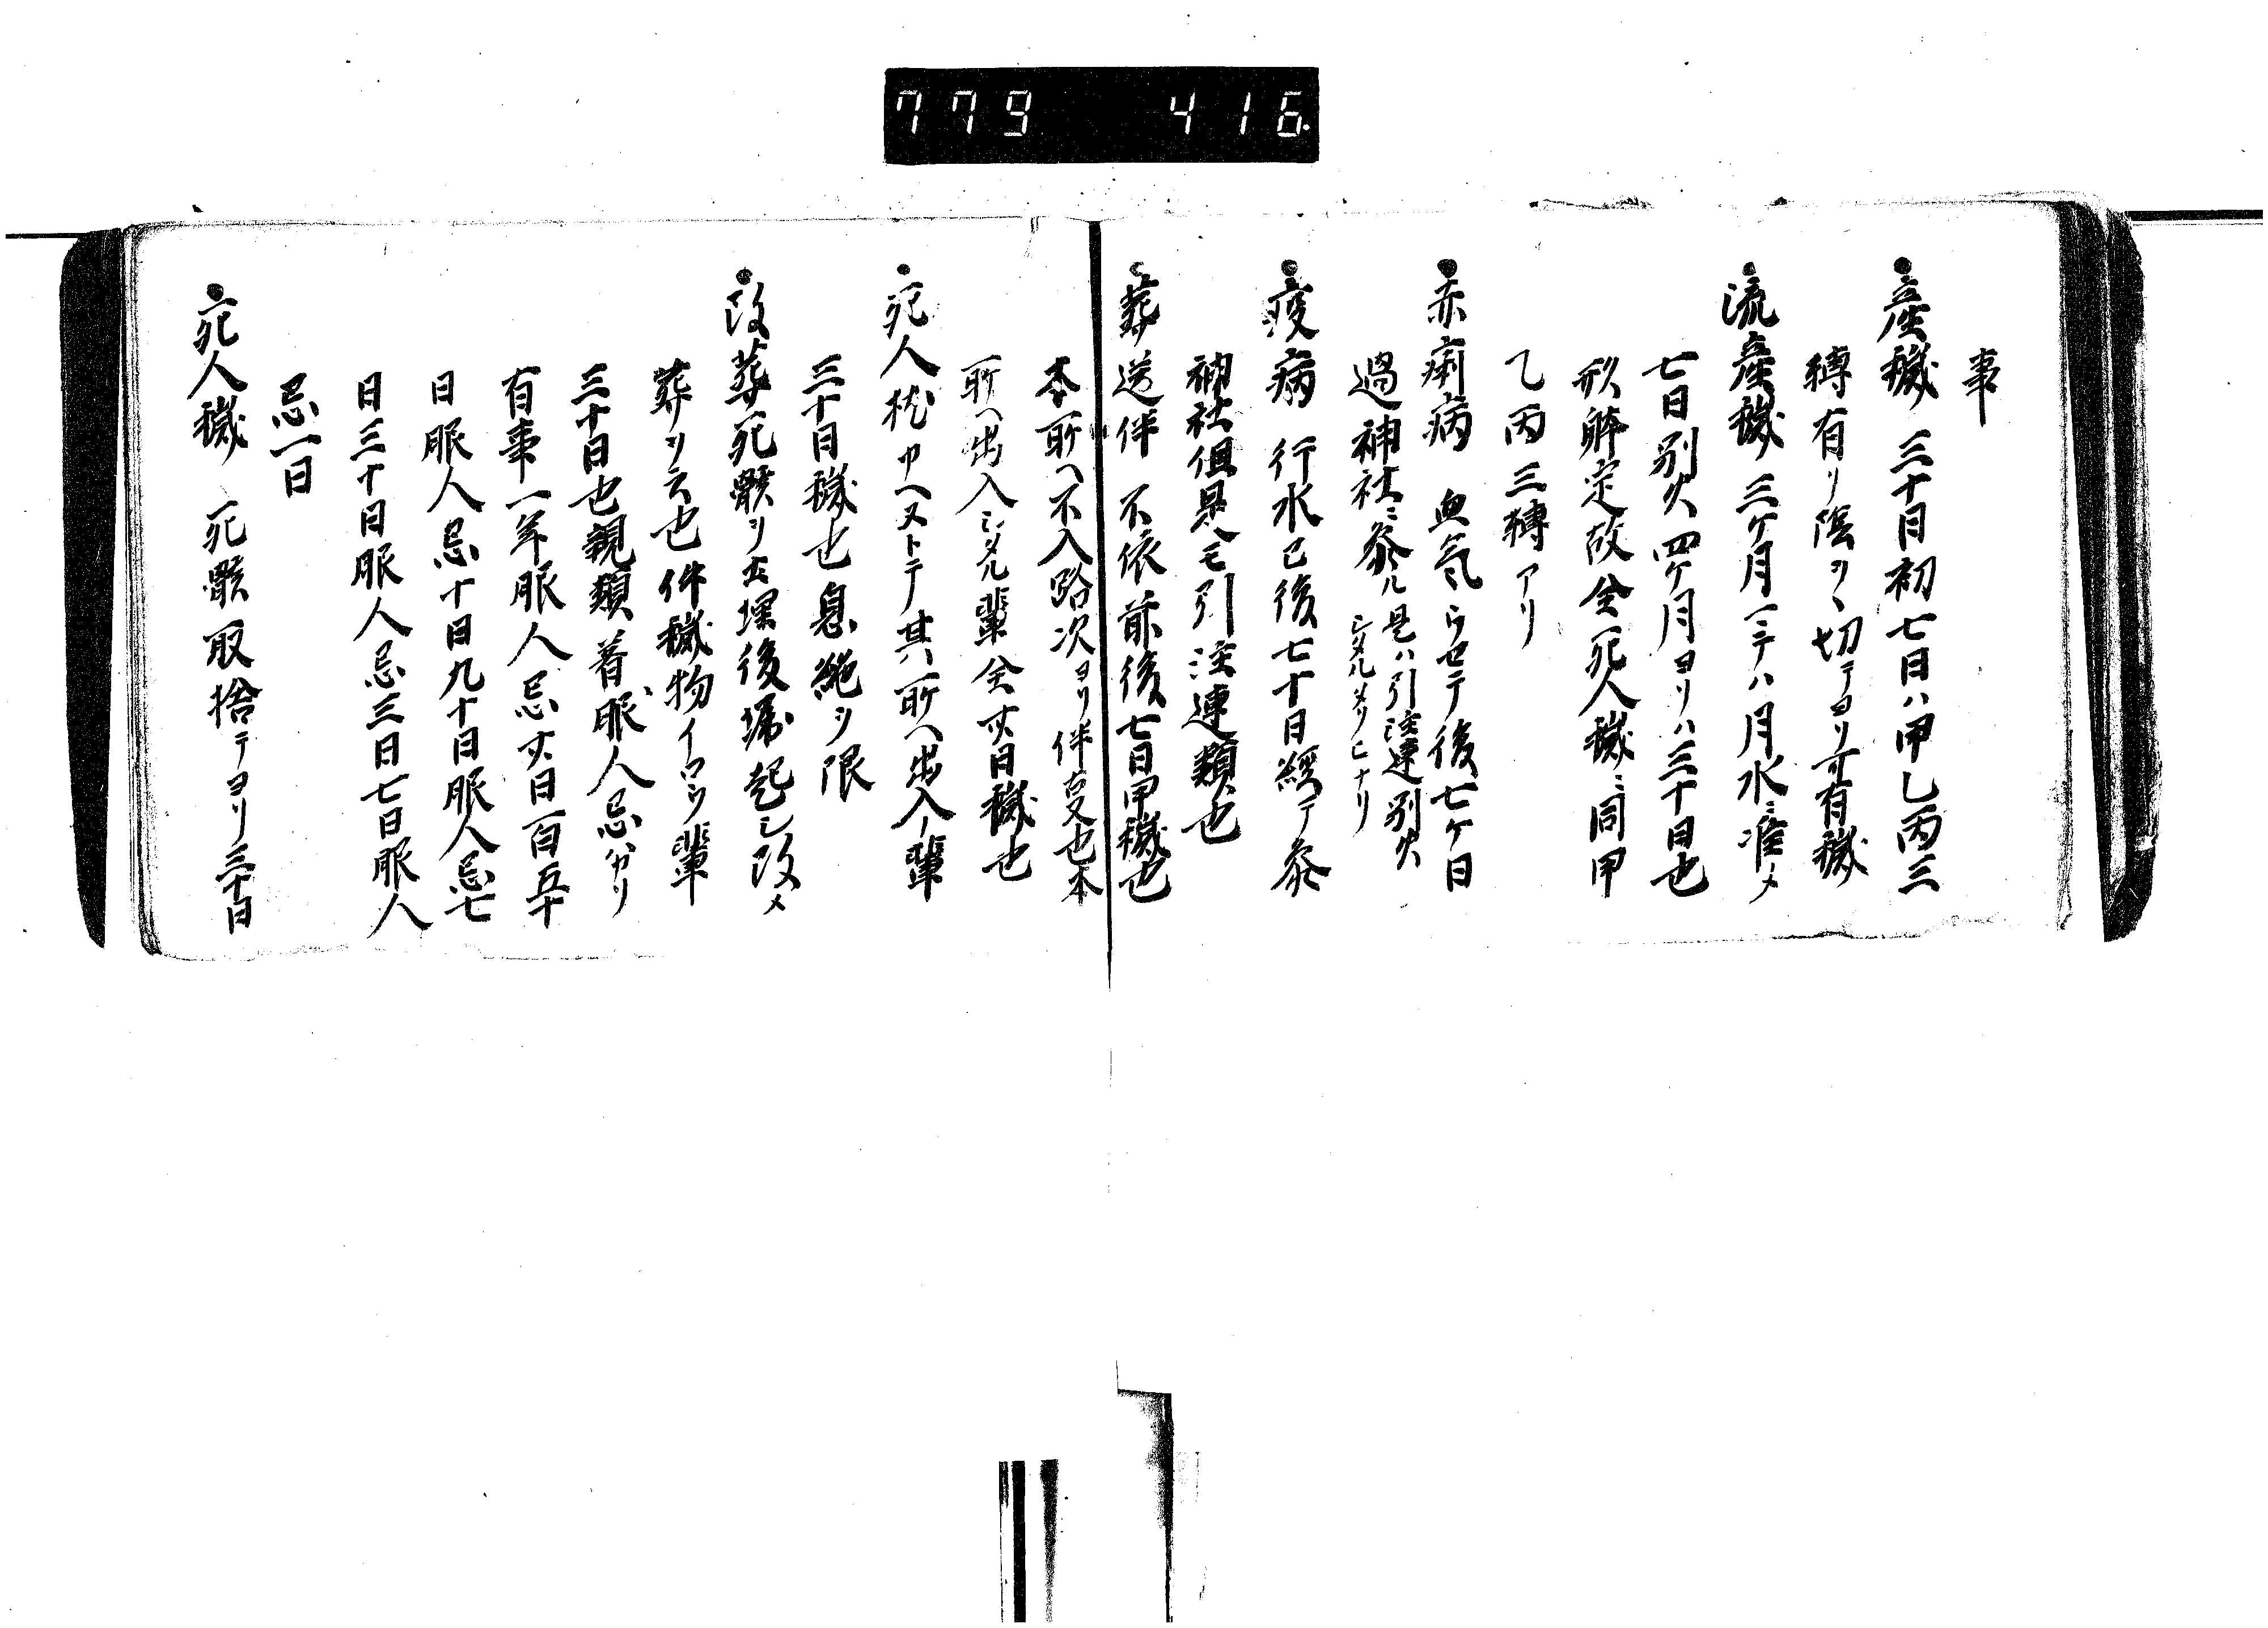 779 416.
事
産穢 三十日初七日ハ甲乙丙三
轉有リ陰ヲヽ切テヨリ可有穢
流産穢 三ケ月ニテハ月水ニ准メ
七日別火四ケ月ヨリハ三十日也
形躰定故全死人穢ニ同甲
乙丙三轉アリ
赤痢病 血気ウセテ後七ケ日
過神社ニ参ル是ハ引注連別火
疫病 行水已後七十日經テ参
神社但是モ引注連類也
葬送伴 不依前後七日甲穢也
本所ヘ不入路次ヨリ伴事也本
所ヘ出入シタル輩全丗日穢也
死人枕カヘストテ其所ヘ出入ノ輩
三十日穢也息絶ヲ限
改葬死骸ヲ土埋後堀起シ改メ
葬ヲ云也件穢物イロウ輩
三十日也親類着服人忌ハカリ
有事一年服人忌丗日百五十
日服人忌十日九十日服人忌七
日三十日服人忌三日七日服人
忌一日
死人穢 死骸取捨テヨリ三十日